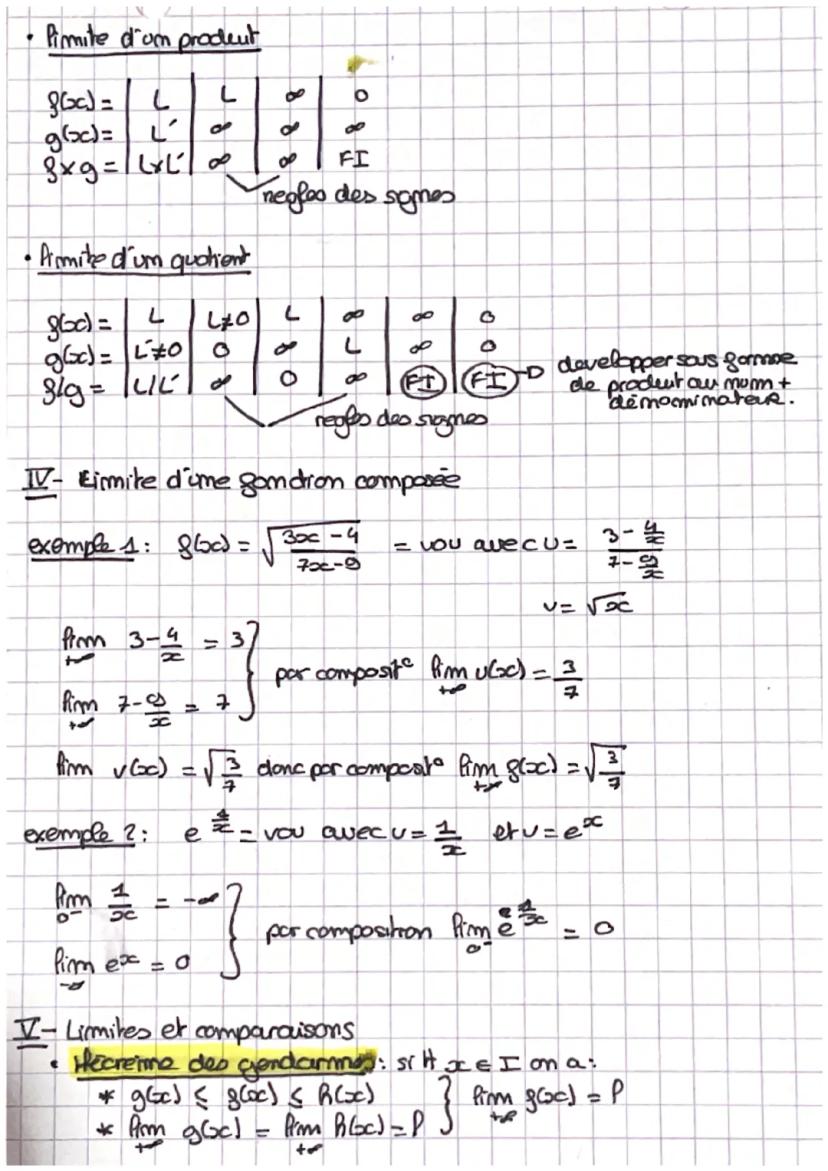 • limite d'un produit
f(x) = | L | L | ∞ | 0
g(x) = | L' | ∞ | ∞ | ∞
f×g = | L×L' | ∞ | ∞ | FI
regles des signes
• limite d'un quotient
f(x) = | L | L≠0 | L | ∞ | ∞ | 0
g(x) = | L'≠0 | 0 | ∞ | L | ∞ | 0
f/g = | L/L' | ∞ | 0 | ∞ | FI | FI → developper sous forme de produit au num + dénominateur.
regles des signes
IV- Limite d'une fonction composée
exemple 1: f(x) = √((3x - 4)/(7x - 9)) = vou avec u = (3 - 4/x)/(7 - 9/x)
v = √x
lim +∞ 3 - 4/x = 3
lim +∞ 7 - 9/x = 7 } par composit° lim +∞ u(x) = 3/7
lim v(x) = √(3/7) donc par composit° lim +∞ f(x) = √(3/7)
exemple 2: e^(1/x) = vou avec u = 1/x et v = e^x
lim 0- 1/x = -∞
lim -∞ e^x = 0 } par composition lim 0- e^(1/x) = 0
V- Limites et comparaisons
• théorème des gendarmes: si ∀ x ∈ I on a:
* g(x) ≤ f(x) ≤ h(x)
* lim +∞ g(x) = lim +∞ h(x) = l } lim +∞ f(x) = l